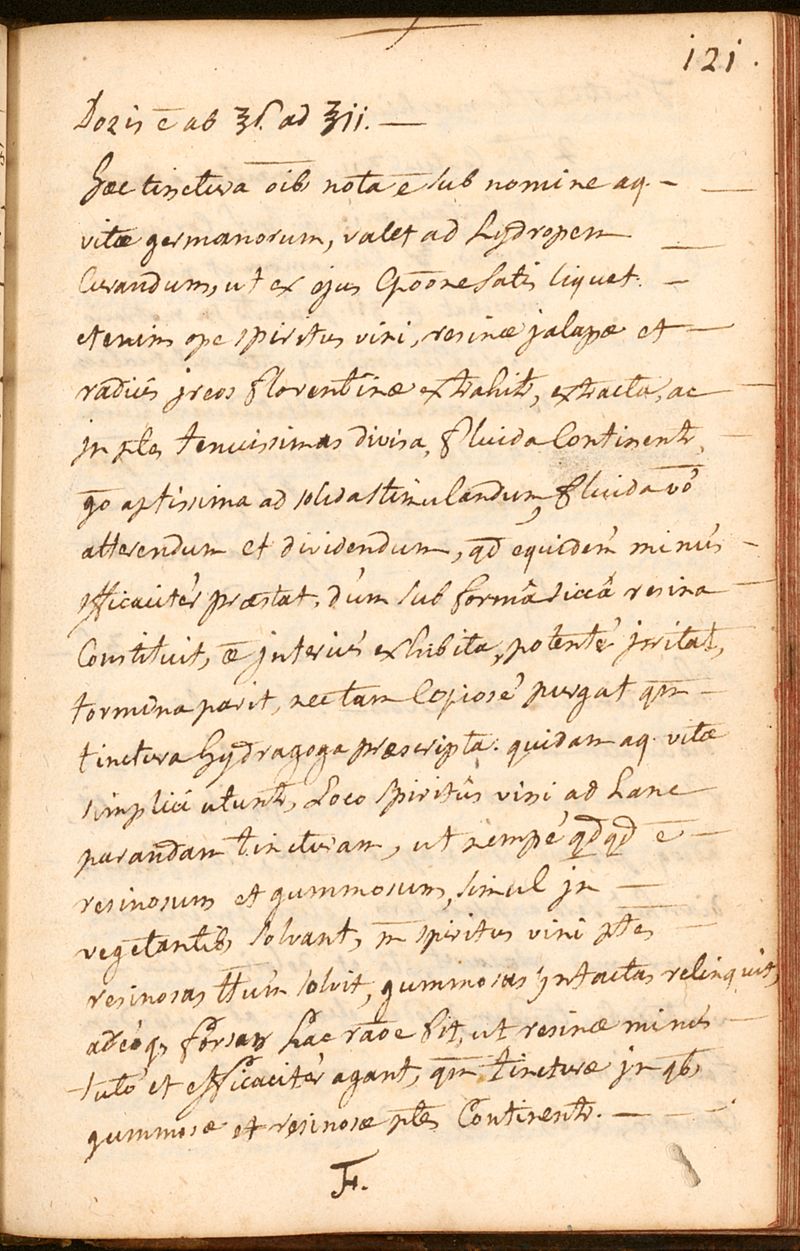 121.
Dozis ē ab ʒſ. ad ʒii. —
Hæc tinctura oīb nota ē sub nomine aq. —
vitæ germanorum, valet ad hydropem —
Curandum, ut ex ejus Cpōōne satis liquet. —
etenim ope spiritus vini, resinæ jalapæ et —
radicis jreos florentinæ extrahitr, extracta, ac —
jn ptes tenuissimas divisa, fluida Continentr, —
ḡo aptissima ad solida stimulandum, fluida vō
atterendum et dividendum, qd equidem minus —
efficaciter præstat, dum sub formâ siccâ resina —
Constituit, ē jnterius exhibita, potentè jrritat,
tormina parit, nec tam Copiosè purgat qm —
tinctura hydragoga præscripta. quidam aq. vitæ
simplici utuntr, Loco spiritûs vini ad hanc —
parandam tincturam, ut nempè qdqd ē —
resinosum et gummosum, simul jn —
vegetantib, solvant, m̄ spiritus vini ptes —
resinosas ttum solvit, gummosas jntactas relinquit,
adeoq, forsan hac raōe fit, ut resinæ minus —
tutò et efficaciter agant, qm tincturæ jn qb,
gummosæ et resinosæ ptes Continentr. — — —
F.